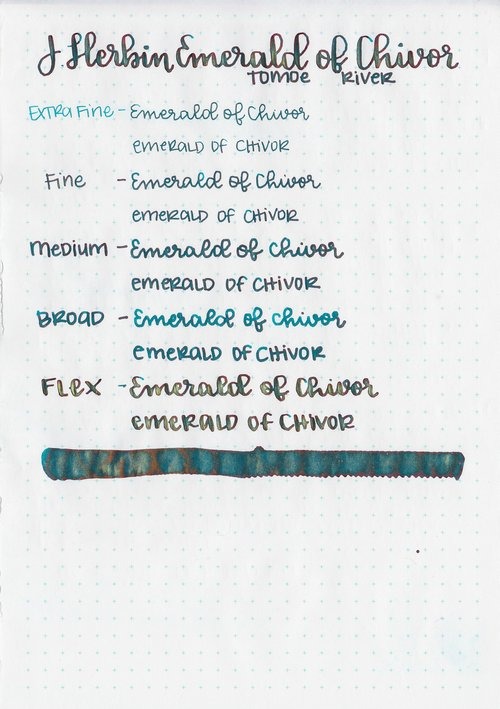 J Herbin Emerald of Chivor
Tomoe River
Extra Fine - Emerald of Chivor
emerald of Chivor
Fine - Emerald of Chivor
emerald of Chivor
medium - Emerald of Chivor
emerald of Chivor
Broad - Emerald of Chivor
emerald of Chivor
Flex - Emerald of Chivor
emerald of Chivor